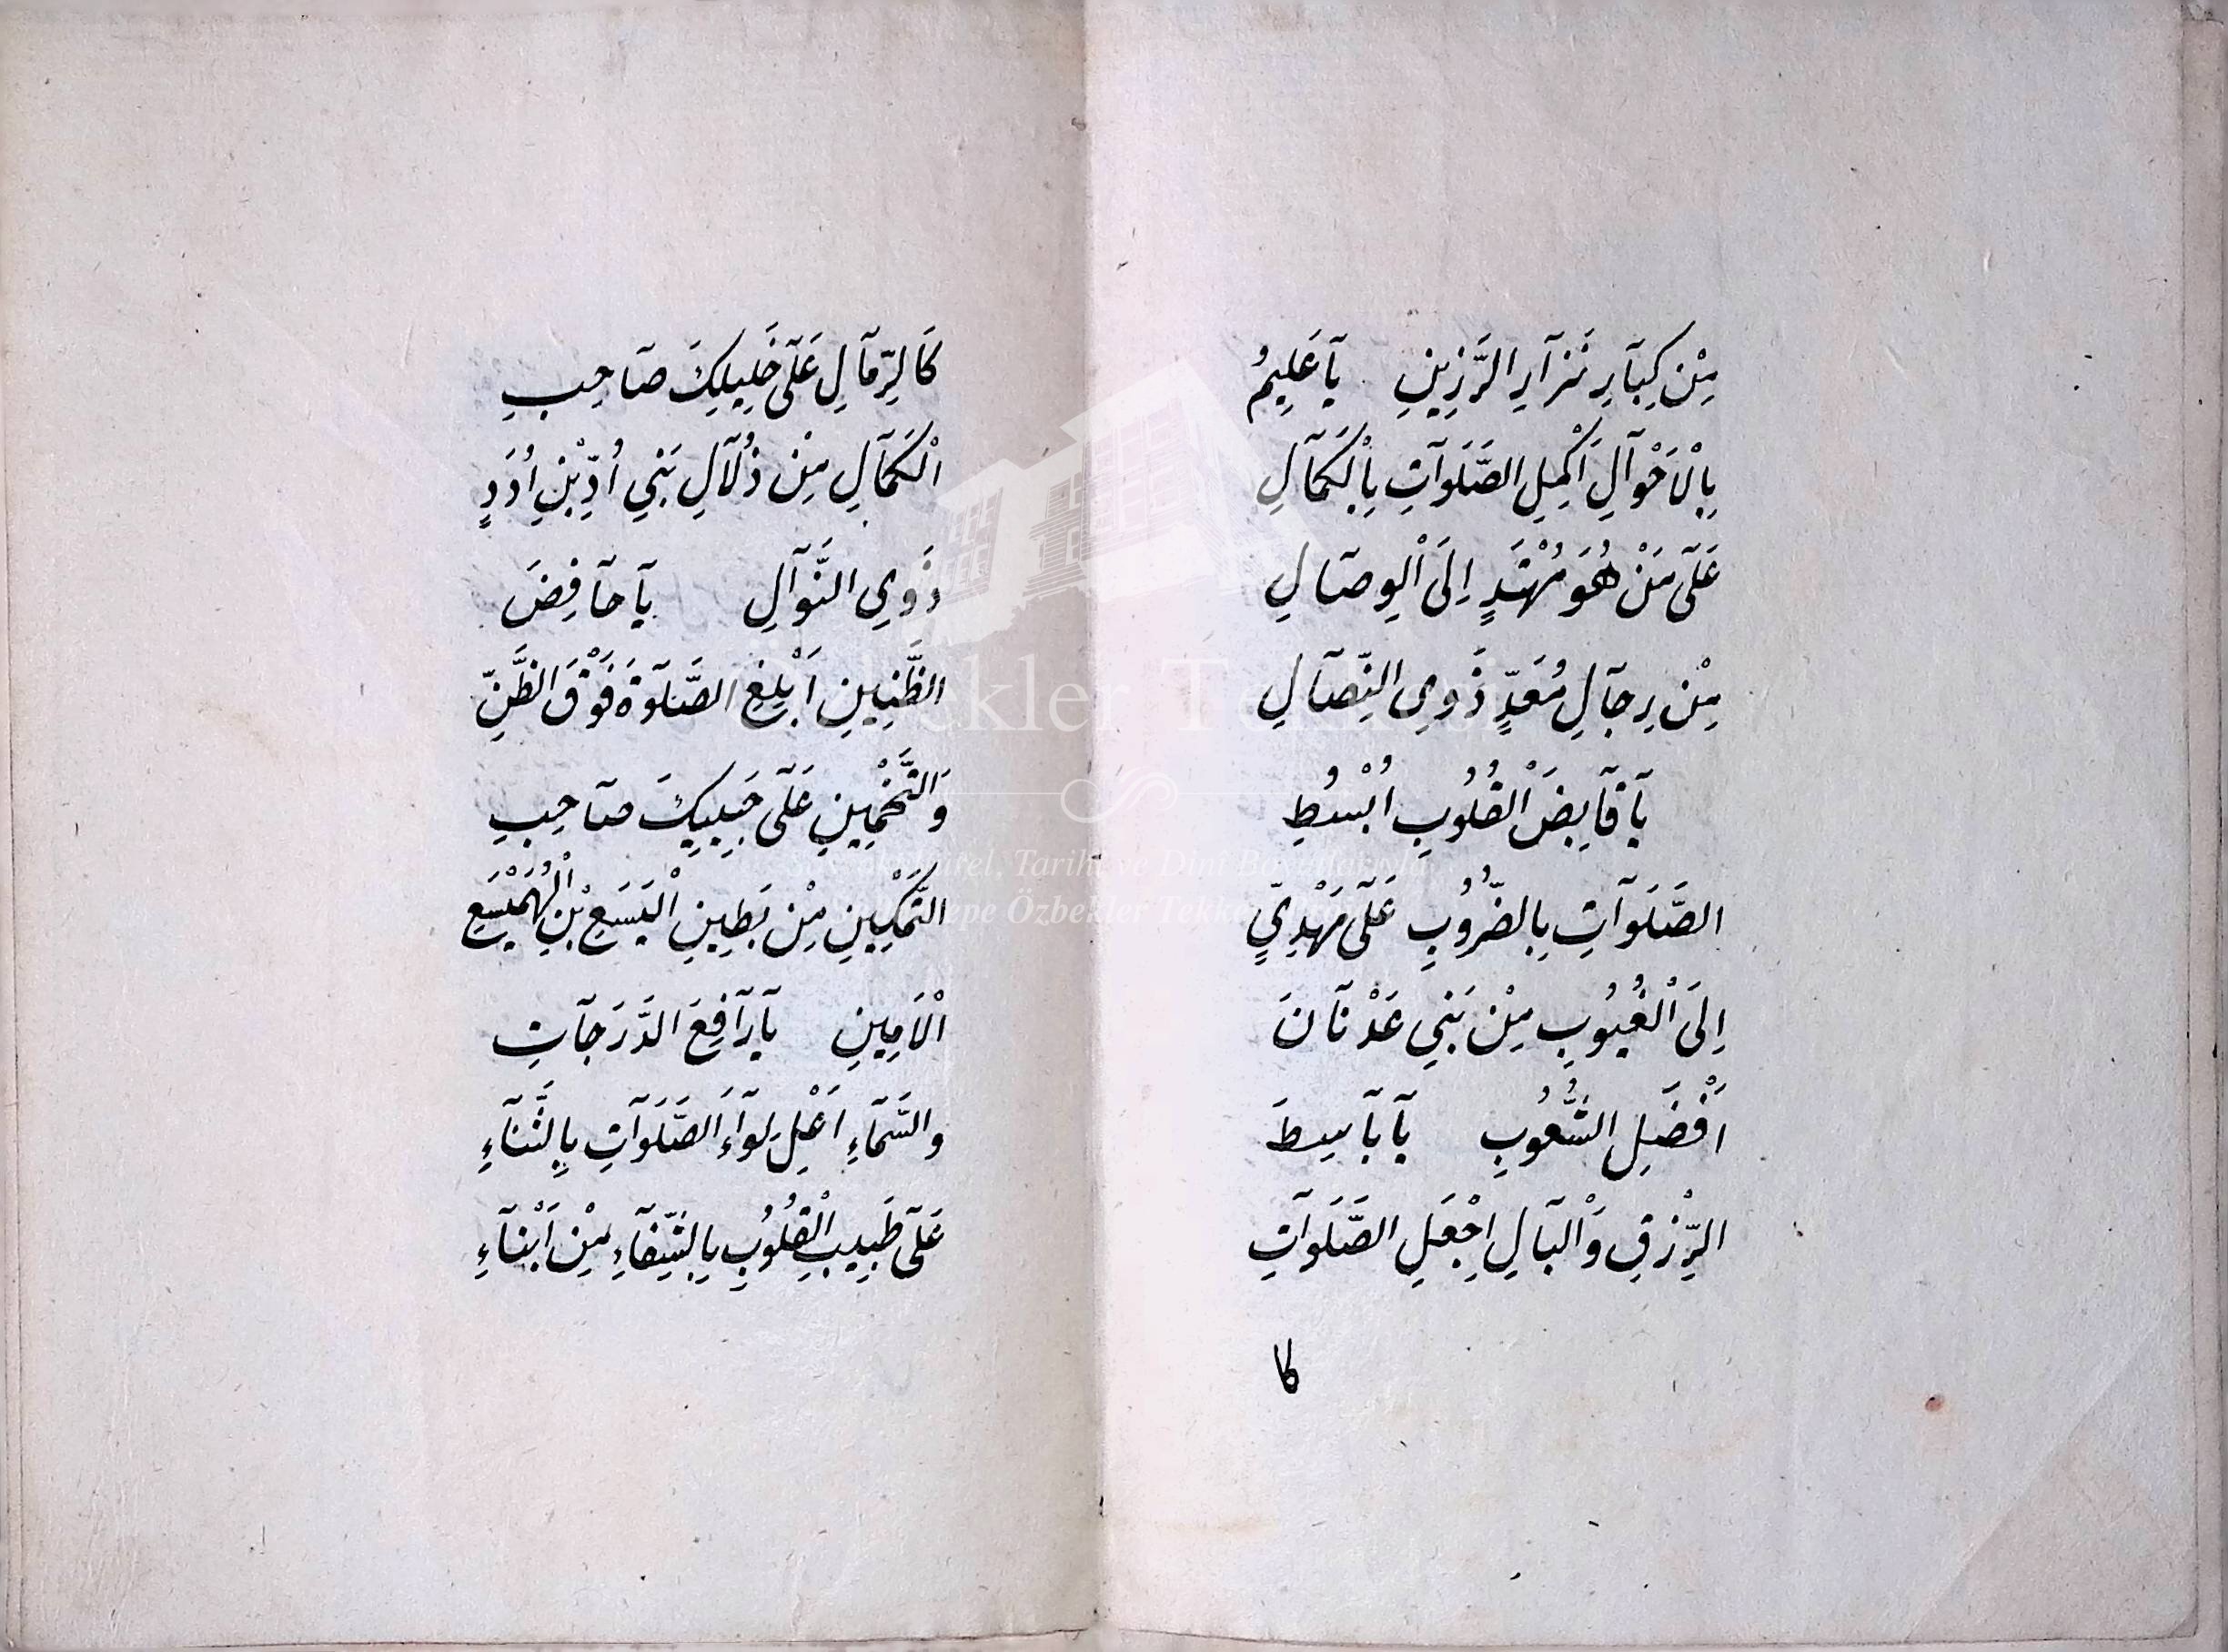 مِنْ كِبَآرِ نَزَآرِ الرَّزِينِ يَآ عَلِيمُ
بِالْاَحْوَآلِ اَكْمِلِ الصَّلَوَآتِ بِالْكَمَآلِ
عَلَى مَنْ هُوَ مُهْتَدٍ اِلَى الْوِصَالِ
مِنْ رِجَآلِ مُعَدٍّ ذَوِي النِّصَآلِ
يَآ قَآبِضَ الْقُلُوبِ ابْسُطِ
الصَّلَوَآتِ بِالضُّرُوبِ عَلَى مَهْدِيٍّ
اِلَى الْغُيُوبِ مِنْ بَنِي عَدْنَآنَ
اَفْضَلِ الشُّعُوبِ يَآ بَآسِطَ
الرِّزْقِ وَالْبَآلِ اِجْعَلِ الصَّلَوَآتِ
كا
كَالرِّمَآلِ عَلَى خَلِيلِكَ صَاحِبِ
الْكَمَآلِ مِنْ ذُلَآلِ بَنِي اُدِّ بْنِ اُدَدٍ
ذَوِي النَّوَآلِ يَآ خَآفِضَ
الظَّنِينِ اَبْلِغِ الصَّلَآوةَ فَوْقَ الظَّنِّ
وَالتَّخْمِينِ عَلَى حَبِيبِكَ صَآحِبِ
التَّمْكِينِ مِنْ بَطِينِ الْيَسَعِ بْنِ الْهُمَيْسَعِ
الْاَمِينِ يَآ رَآفِعَ الدَّرَجَآتِ
وَالسَّمَآءِ اَعْلِ لِوَآءَ الصَّلَوَآتِ بِالثَّنَآءِ
عَلَى طَبِيبِ الْقُلُوبِ بِالشِّفَآءِ مِنْ اَبْنَآءِ
Özbekler Tekkesi